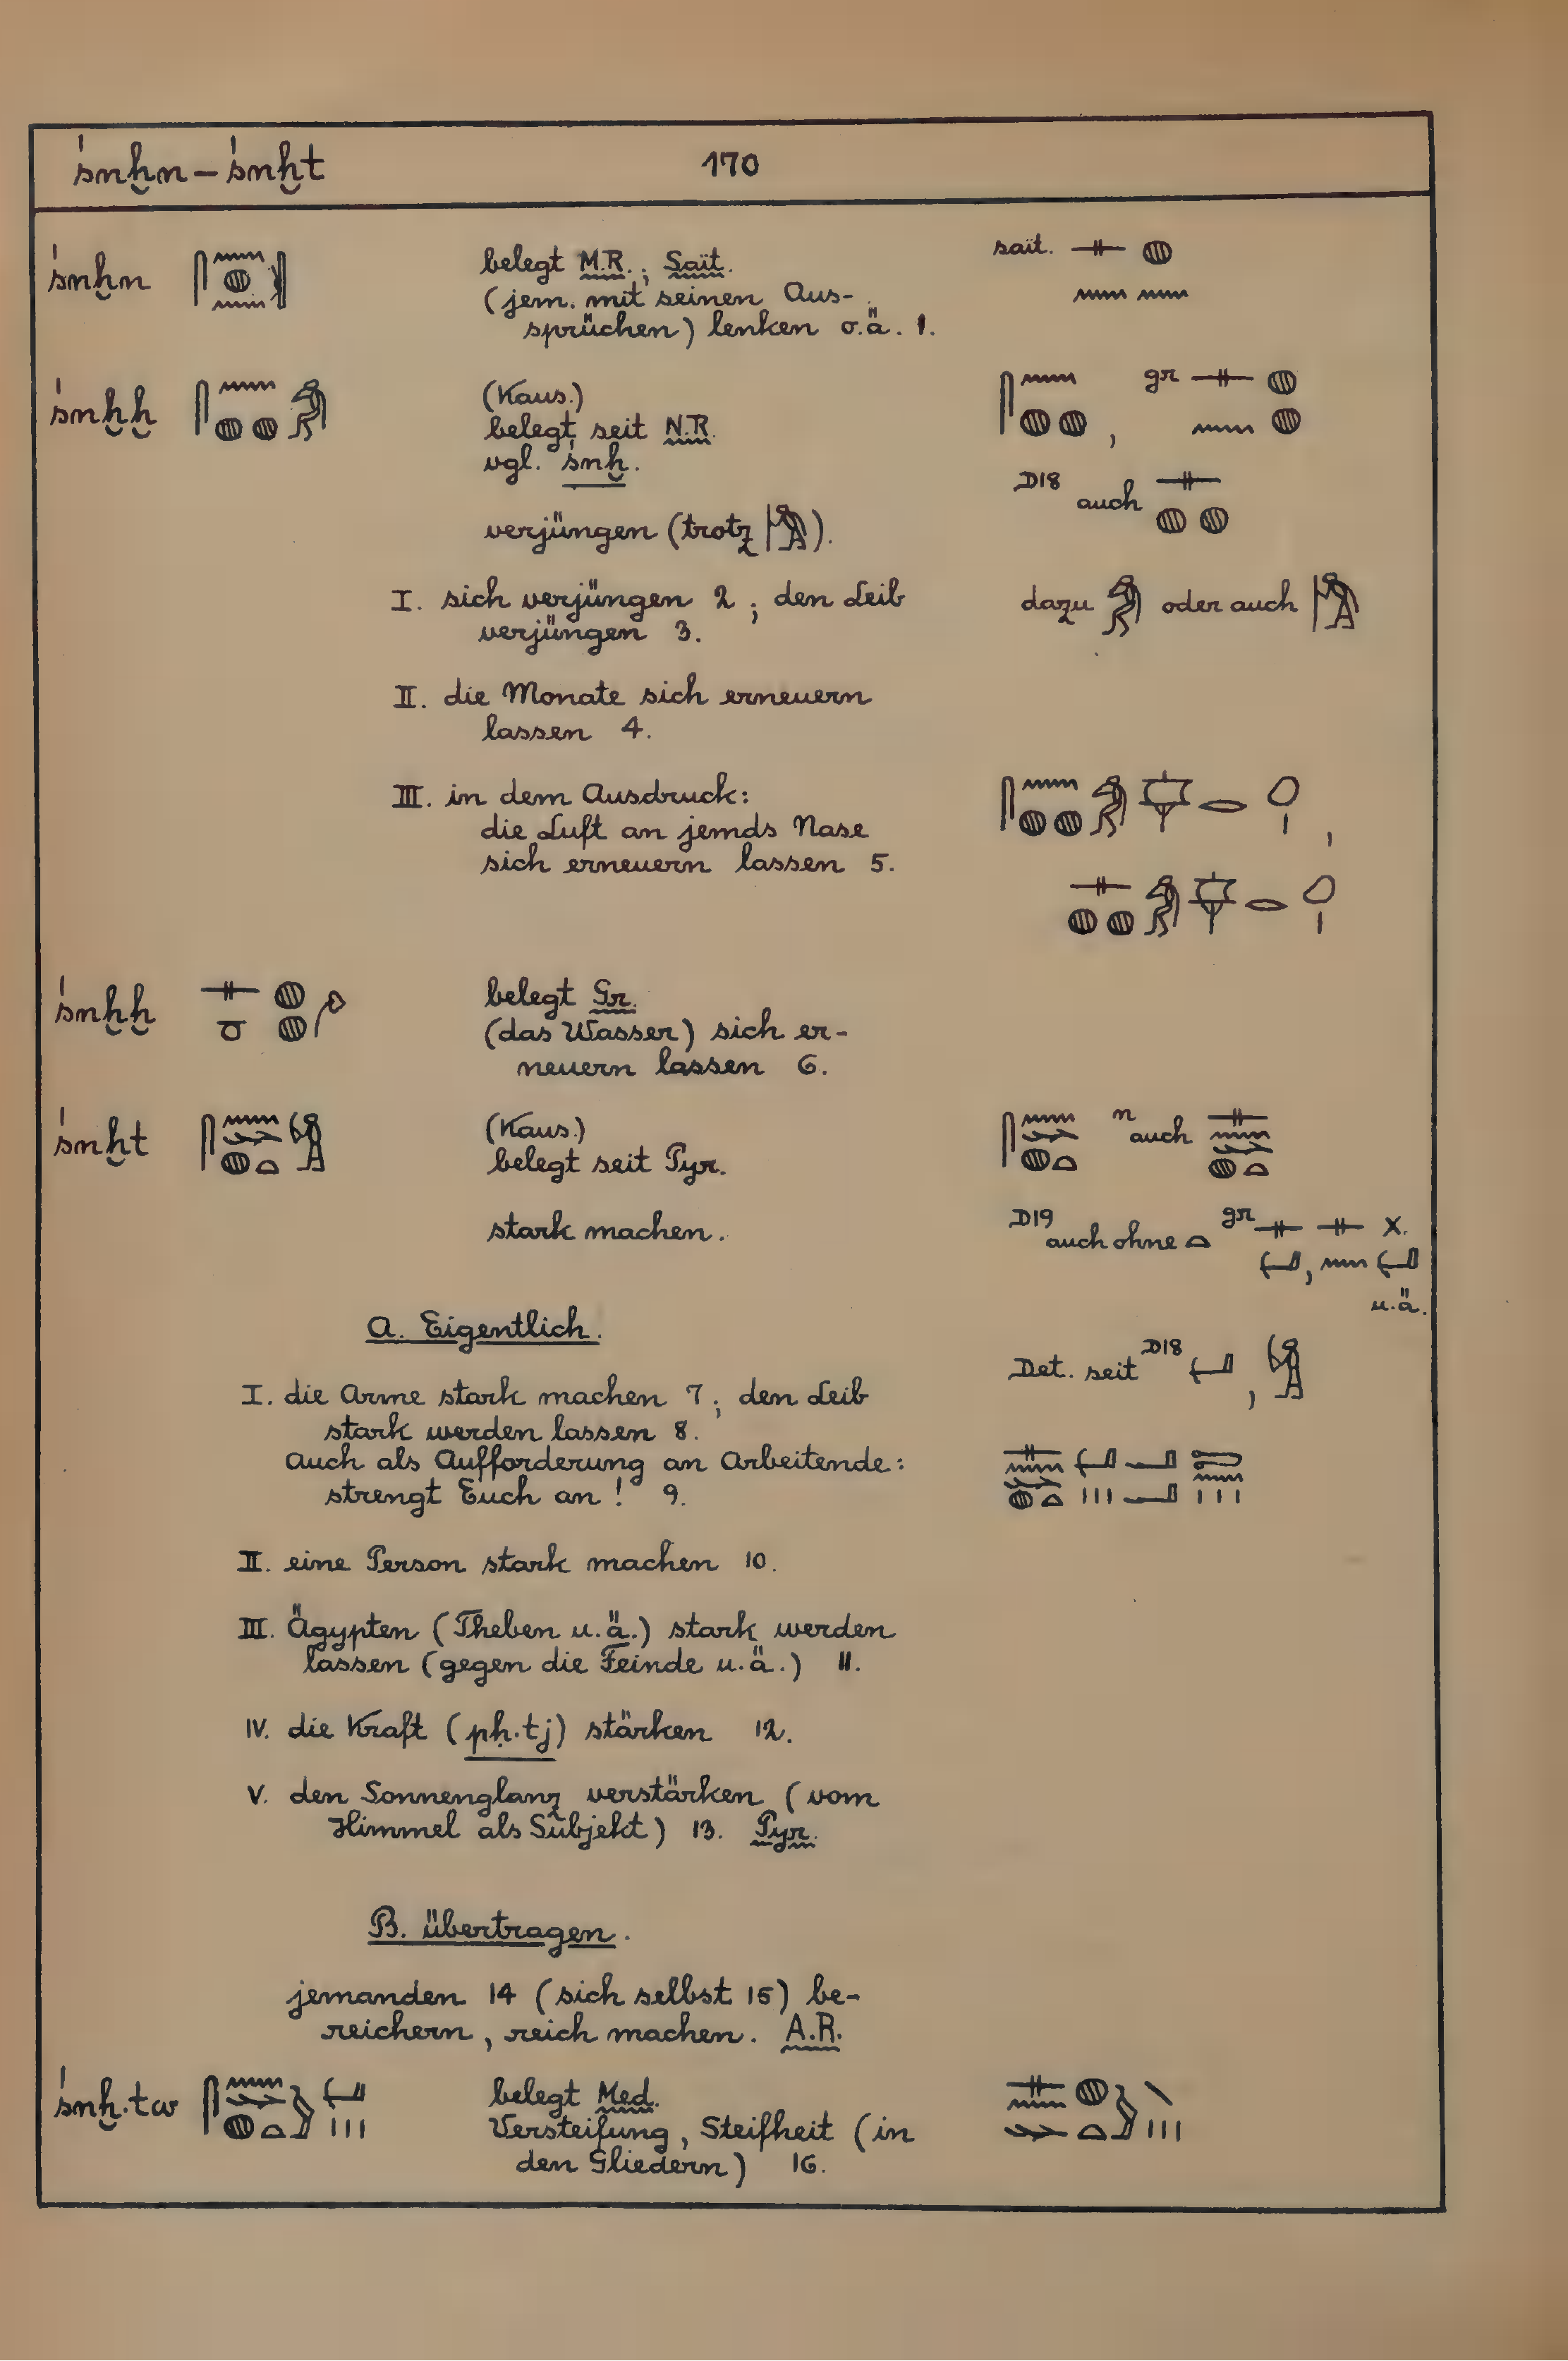 śnḫn – śnḫt 170
śnḫn belegt M.R.; Saït. saït.
(jem. mit seinen Aus-
sprüchen) lenken o.ä. 1.
śnḫḫ (Kaus.) gr
belegt seit N.R. ,
vgl. śnḫ.
D18 auch
verjüngen (trotz ).
I. sich verjüngen 2; den Leib dazu oder auch
verjüngen 3.
II. die Monate sich erneuern
lassen 4.
III. in dem Ausdruck:
die Luft an jemds Nase ,
sich erneuern lassen 5.
śnḫḫ belegt Gr.
(das Wasser) sich er-
neuern lassen 6.
śnḫt (Kaus.) n auch
belegt seit Pyr.
stark machen. D19 auch ohne gr X.
,
u.ä.
A. Eigentlich.
Det. seit D18 ,
I. die Arme stark machen 7; den Leib
stark werden lassen 8.
Auch als Aufforderung an Arbeitende:
strengt Euch an! 9.
II. eine Person stark machen 10.
III. Ägypten (Theben u.ä.) stark werden
lassen (gegen die Feinde u.ä.) 11.
IV. die Kraft (pḥ.tj) stärken 12.
V. den Sonnenglanz verstärken (vom
Himmel als Subjekt) 13. Pyr.
B. übertragen.
jemanden 14 (sich selbst 15) be-
reichern, reich machen. A.R.
śnḫ.tw belegt Med.
Versteifung, Steifheit (in
den Gliedern) 16.